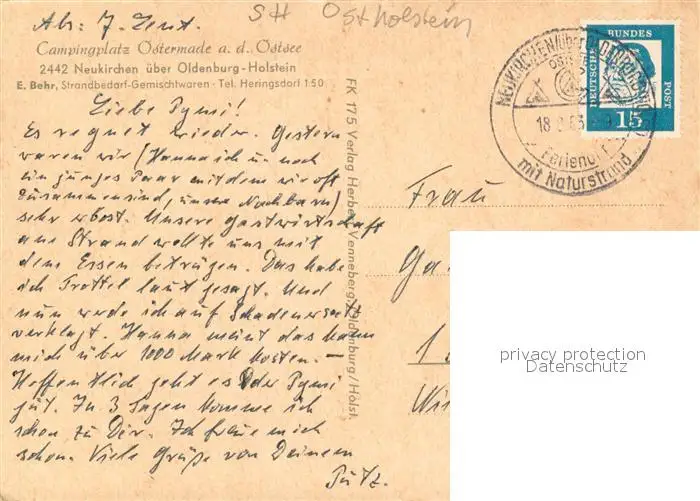 Ab: 7. Zent.
SH Ostholstein
Campingplatz Ostermade a. d. Ostsee
2442 Neukirchen über Oldenburg-Holstein
E. Behr, Strandbedarf-Gemischtwaren · Tel. Heringsdorf 150
Liebe Pymi!
Es regnet wieder. Gestern
waren wir (Hanna ich u. noch
ein junges Paar mit dem wir oft
zusammen sind, unsere Nachbarn)
sehr erbost. Unsere Gastwirtschaft
am Strand wollte uns mit
dem Essen betrügen. Das habe
ich Trottel laut gesagt. Und
nun werde ich auf Schadenersatz
verklagt. Hanna meint das kann
mich über 1000 Mark kosten. –
Hoffentlich geht es Dir Pymi
gut. In 3 Tagen komme ich
schon zu Dir. Ich freue mich
schon. Viele Grüße von Deinem
Putz.
FK 175 Verlag Herbert Venneberg/Oldenburg/Holst.
NEUKIRCHEN/ÜBER OLDENBURG
18
Ferienort
mit Naturstrand
DEUTSCHE BUNDESPOST
15
Frau
Ga
1
Wi
privacy protection
Datenschutz